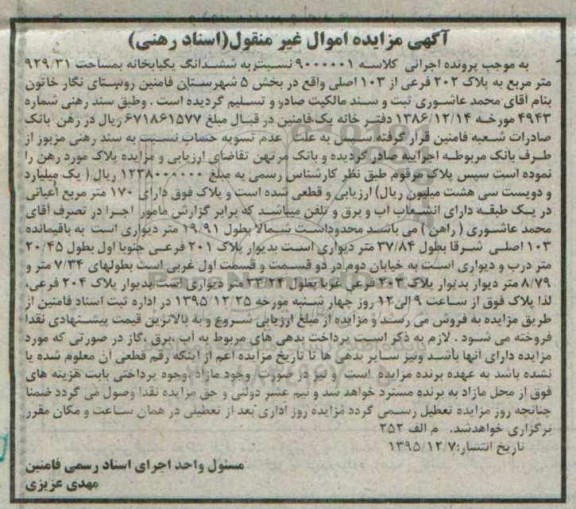 آگهی مزایده اموال غیر منقول(اسناد رهنی)
به موجب پرونده اجرائی کلاسه ۹۰۰۰۰۰۱ نسبت به ششدانگ یکبابخانه بمساحت ۹۲۹/۳۱
متر مربع به پلاک ۲۰۲ فرعی از ۱۰۳ اصلی واقع در بخش ۵ شهرستان فامنین روستای نگار خاتون
بنام آقای محمد عاشوری ثبت و سند مالکیت صادر و تسلیم گردیده است . وطبق سند رهنی شماره
۴۹۴۳ مورخه ۱۳۸۶/۱۲/۱۴ دفتر خانه یک فامنین در قبال مبلغ ۶۷۱۸۶۱۵۷۷ ریال در رهن بانک
صادرات شعبه فامنین قرار گرفته، سپس به علت عدم تسویه حساب نسبت به سند رهنی مزبور از
طرف بانک مربوطه اجرائیه صادر گردیده و بانک مرتهن تقاضای ارزیابی و مزایده پلاک مورد رهن را
نموده است سپس پلاک مرقوم طبق نظر کارشناس رسمی به مبلغ ۱۲۳۸۰۰۰۰۰۰ ریال ( یک میلیارد
و دویست سی هشت میلیون ریال) ارزیابی و قطعی شده است و پلاک فوق دارای ۱۷۰ متر مربع اعیانی
در یک طبقه دارای انشعاب آب و برق و تلفن میباشد که برابر گزارش مامور اجرا در تصرف آقای
محمد عاشوری ( راهن ) می باشد محدوداست شمالا بطول ۱۹/۹۱ متر دیواری است به باقیمانده
۱۰۳ اصلی شرقا بطول ۳۷/۸۴ متر دیواری است بدیوار پلاک ۲۰۱ فرعی جنوبا اول بطول ۲۰/۴۵
متر درب و دیواری است به خیابان دوم در دو قسمت و قسمت اول غربی است بطولهای ۷/۳۴ متر و
۸/۷۹ متر دیوار بدیوار پلاک ۲۰۳ فرعی غربا بطول ۲۳/۲۴ متر دیواری است بدیوار پلاک ۲۰۴ فرعی،
لذا پلاک فوق از ساعت ۹ الی۱۲ روز چهار شنبه مورخه ۱۳۹۵/۱۲/۲۵ در اداره ثبت اسناد فامنین از
طریق مزایده به فروش می رسد و مزایده از مبلغ ارزیابی شروع و به بالاترین قیمت پیشنهادی نقدا
فروخته می شود . لازم به ذکر است پرداخت بدهی های مربوط به آب ،برق ،گاز در صورتی که مورد
مزایده دارای آنها باشد ونیز سایر بدهی ها تا تاریخ مزایده اعم از اینکه رقم قطعی آن معلوم شده یا
نشده باشد به عهده برنده مزایده است و نیز در صورت وجود مازاد ،وجوه پرداختی بابت هزینه های
فوق از محل مازاد به برنده مسترد خواهد شد و نیم عشر دولتی و حق مزایده نقدا وصول می گردد ضمنا
چنانچه روز مزایده تعطیل رسمی گردد مزایده روز اداری بعد از تعطیلی در همان ساعت و مکان مقرر
برگزاری خواهدشد. م الف ۲۵۲
تاریخ انتشار:۱۳۹۵/۱۲/۷
مسئول واحد اجرای اسناد رسمی فامنین
مهدی عزیزی